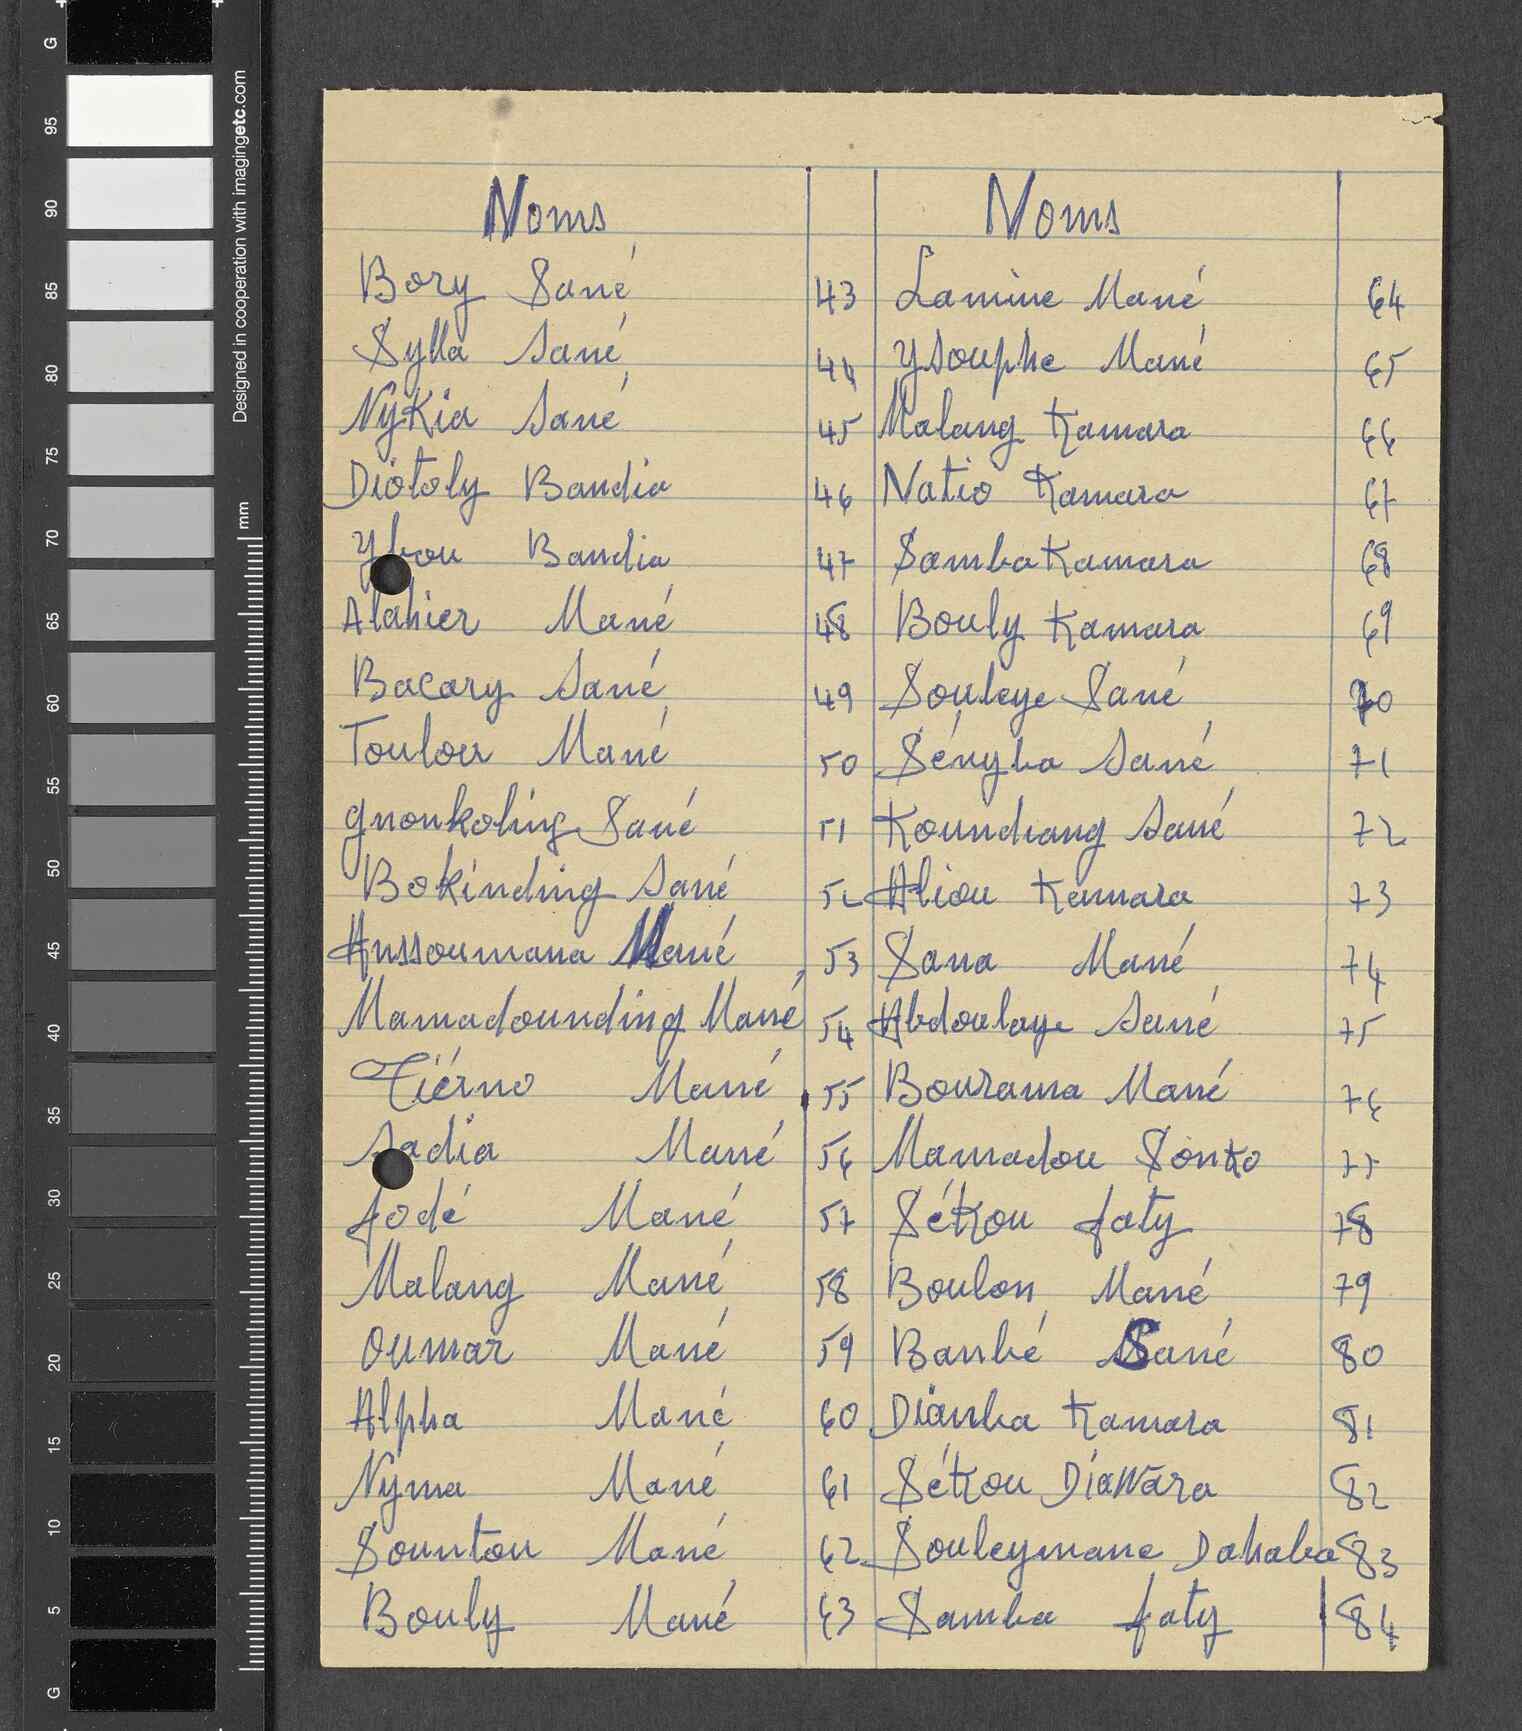 Noms
Bory Sané 43
Sylla Sané 44
Nykia Sané 45
Diotoly Bandia 46
Ybou Bandia 47
Alanier Mané 48
Bacary Sané 49
Toulou Mané 50
gnonkoling Sané 51
Bokinding Sané 52
Anssoumana Mané 53
Mamadounding Mané 54
Tiérno Mané 55
Sadia Mané 56
fodé Mané 57
Malang Mané 58
Oumar Mané 59
Alpha Mané 60
Nyma Mané 61
Sountou Mané 62
Bouly Mané 63
Noms
Lamine Mané 64
Ysouphe Mané 65
Malang Kamara 66
Natio Kamara 67
Samba Kamara 68
Bouly Kamara 69
Souleye Sané 70
Sényba Sané 71
Koundiang Sané 72
Aliou Kamara 73
Sana Mané 74
Abdoulaye Sané 75
Bourama Mané 76
Mamadou Sonko 77
Sékou faty 78
Boulon Mané 79
Banbé Sané 80
Dianba Kamara 81
Sékou Diawara 82
Souleymane Dahaba 83
Samba faty 84
G
95
90
85
80
75
70
65
60
55
50
45
40
35
30
25
20
15
10
5
G
Designed in cooperation with imagingetc.com
mm